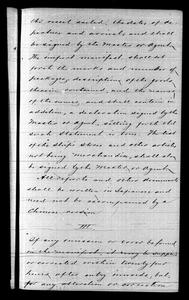 the vessel sailed, the dates of de-
parture and arrival and shall
be signed by the Master or Agent.
The import manifest shall set
forth the marks and number of
packages, description of the goods
therein contained, and the names
of the owners, and shall contain in
addition, a declaration signed by the
Master or Agent, setting forth that
such statement is true. The list
of the ship's stores and other articles
not being merchandise, shall also
be signed by the Master or Agent.
All reports and other documents
shall be written in Japanese and
need not be accompanied by a
Chinese version
III
If any omission or error be found
in the manifest, it may be supplied
or corrected within twenty four
hours after entry inwards, but
for any alteration or correction